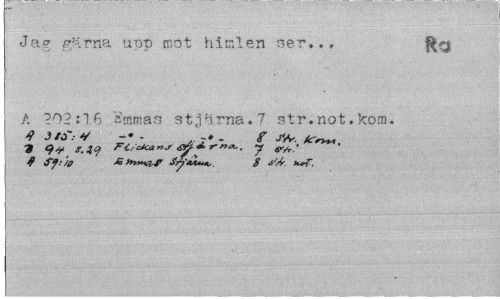 Jag gärna upp mot himlen ser... Ra
A 202:16 Emmas stjärna.7 str.not.kom.
A 385:4 -"- -"- 8 str. Kom.
B 94 s.29 Flickans stjärna. 7 str.
A 59:10 Emmas Stjärna. 8 str. not.